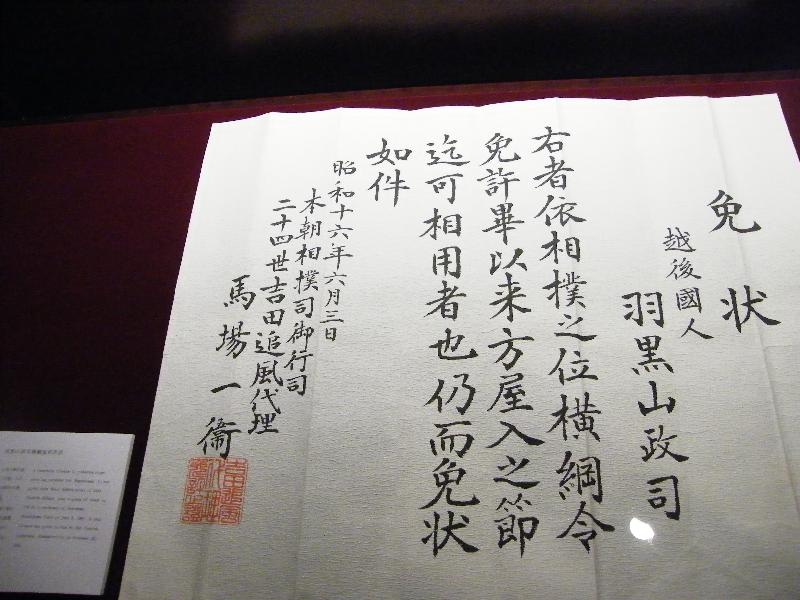 免状
越後國人
羽黒山政司
右者依相撲之位横綱令
免許畢以来方屋入之節
迄可相用者也仍而免状
如件
昭和十六年六月三日
本朝相撲司御行司
二十四世吉田追風代理
馬場一衛